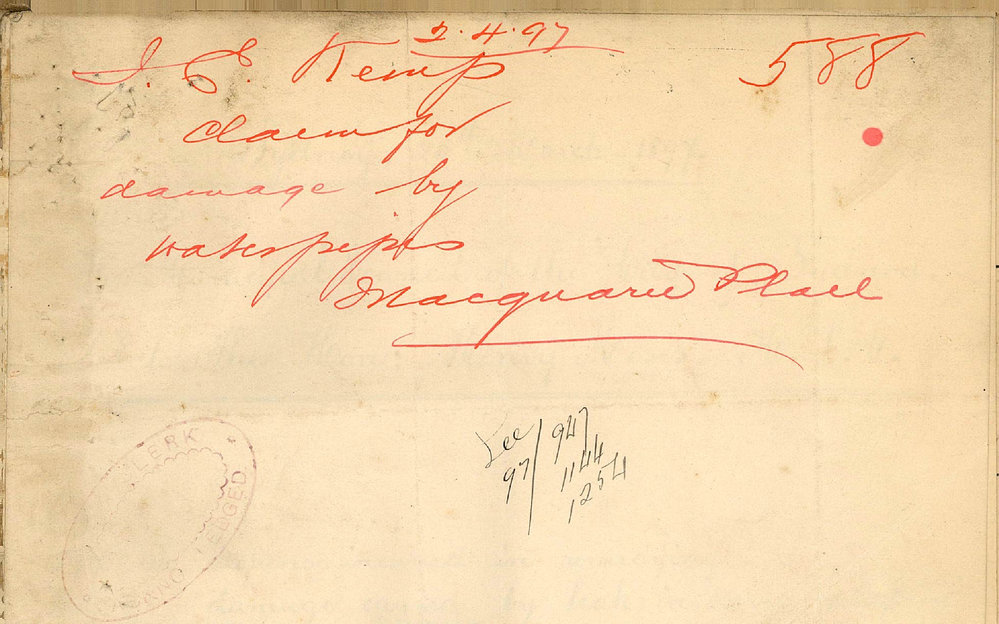 2.4.97
J. E. Kemp
588
claim for
damage by
waterpipes
Macquarie Place
See
97/947
1144
1254
CLERK
LEDGED